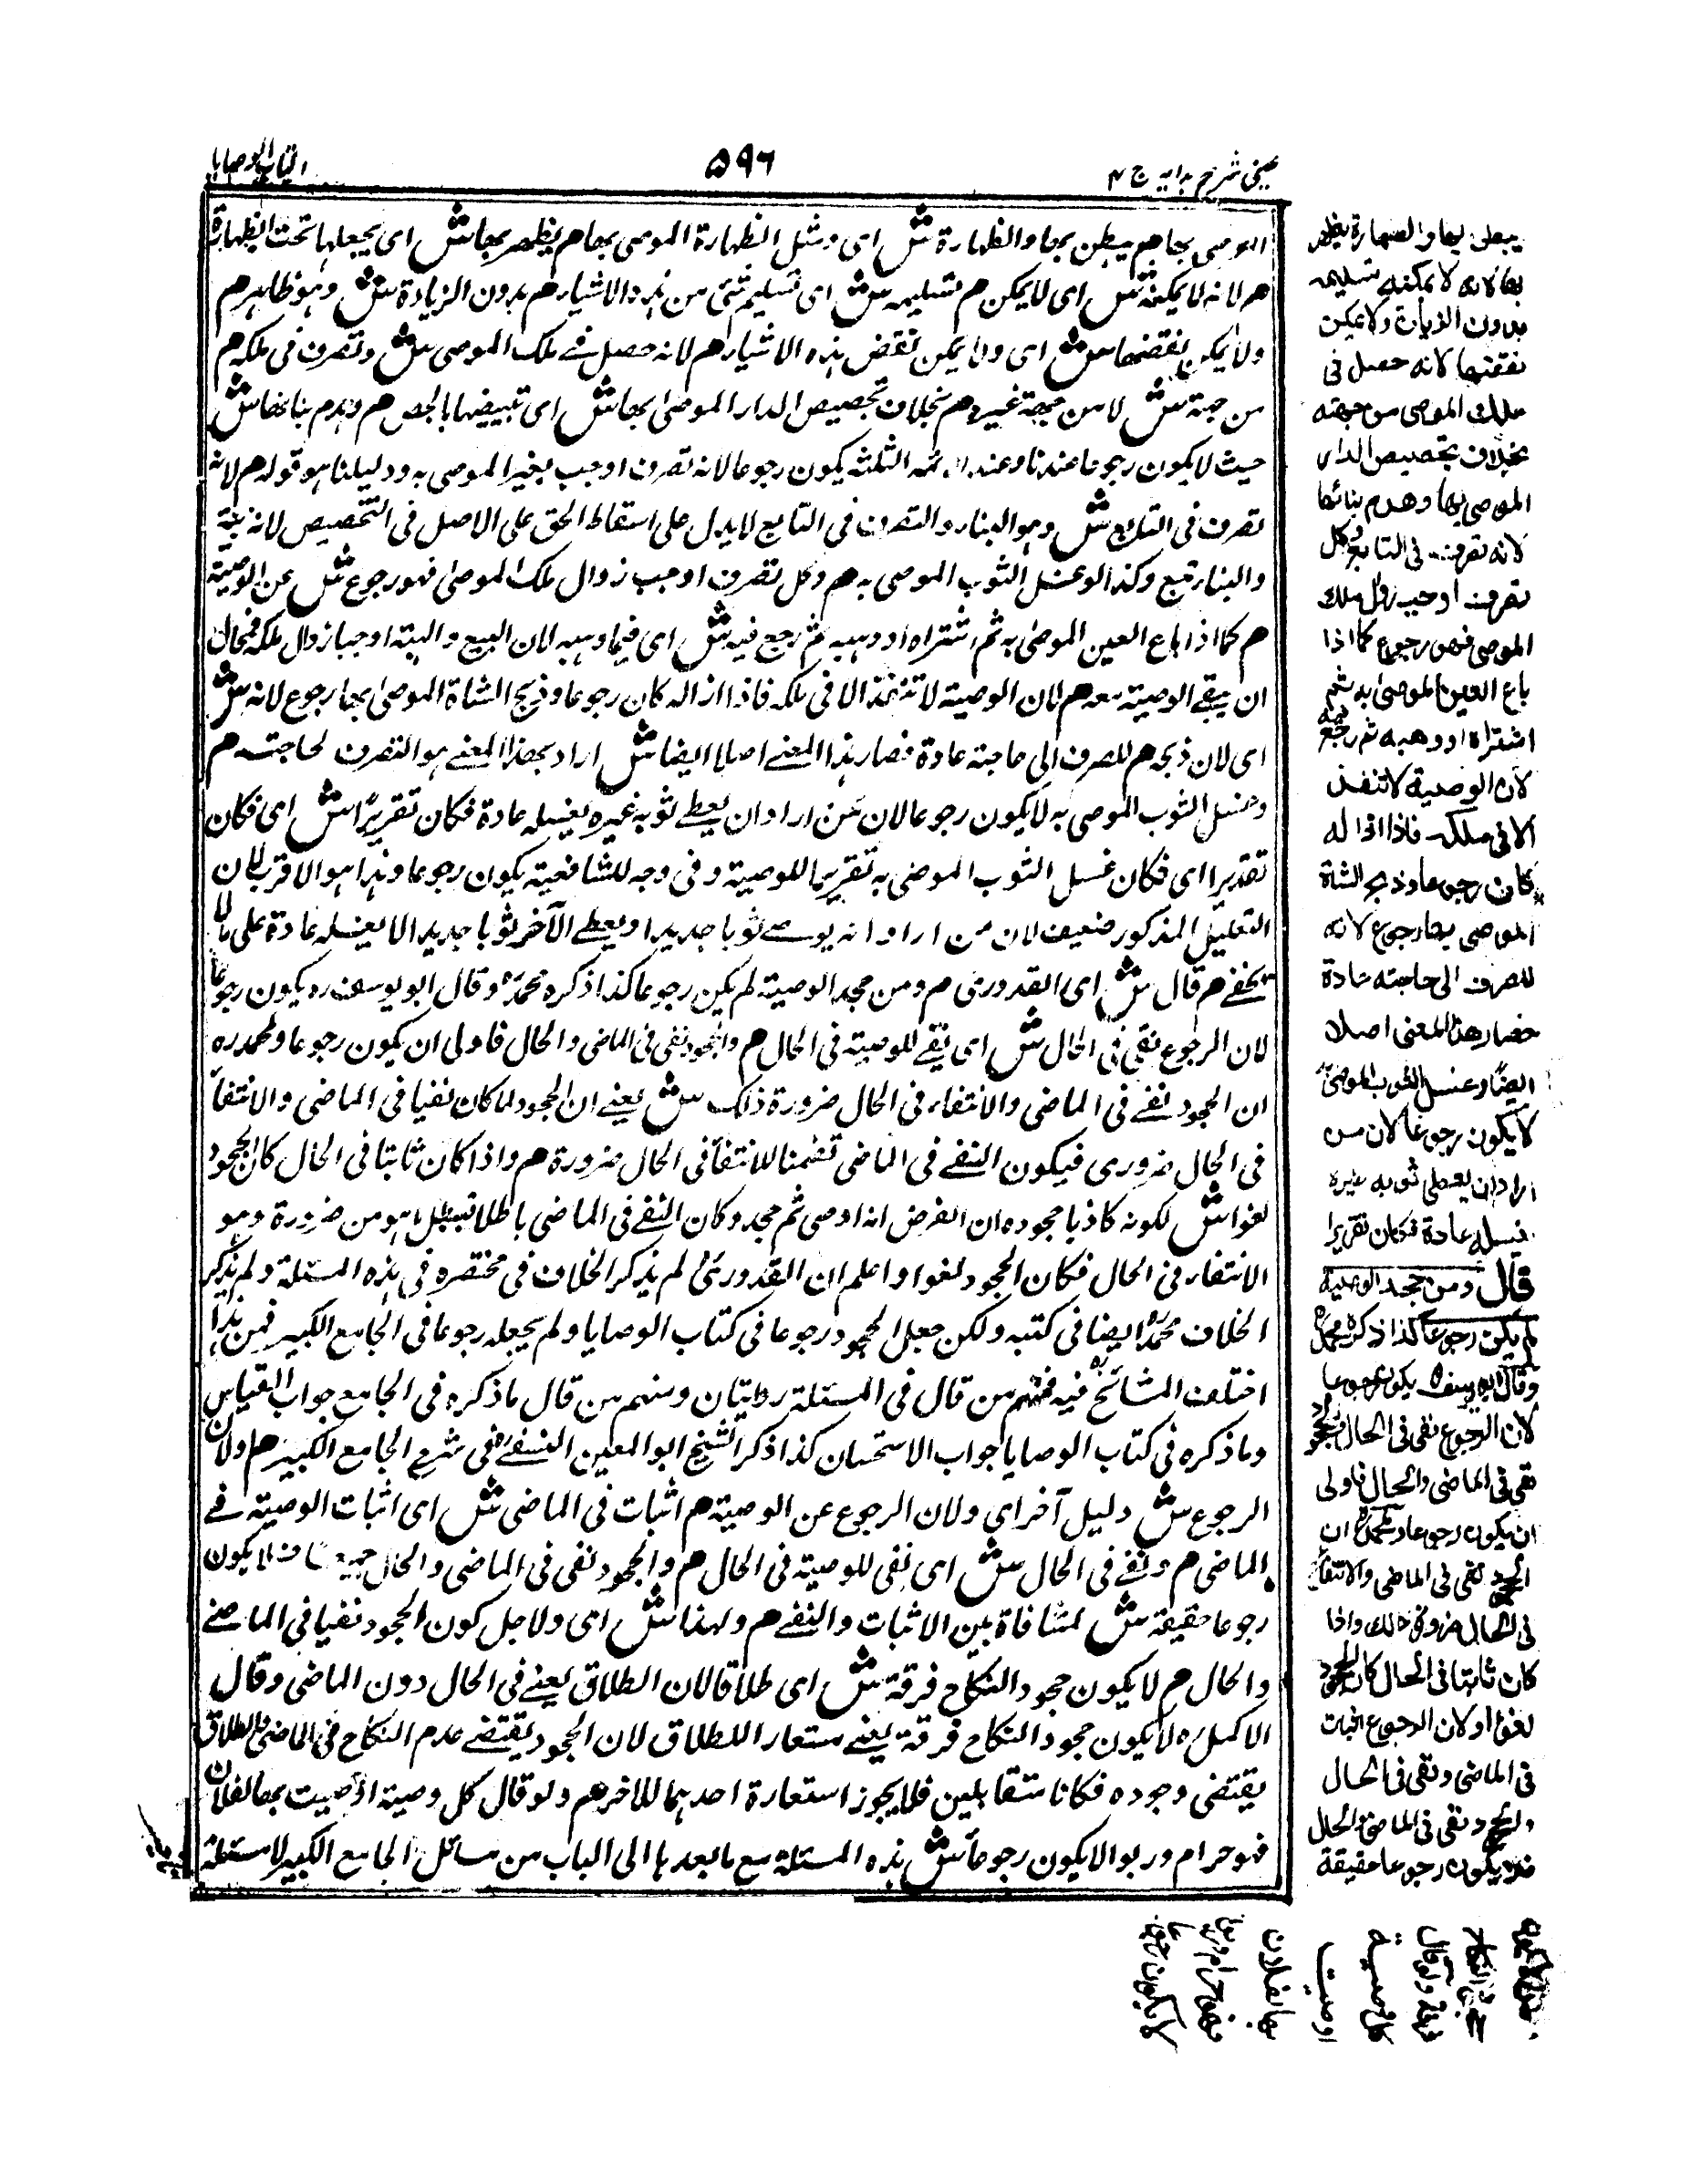 عينى شرح هدايه ج ۴
۵۹۶
كتاب الوصايا
الموصى بها هم يبطن بها والظهارة ش اى ومثل الظهارة الموصى بها هم يظهر بها ش اى يجعلها تحت الظهارة
هم لانه لا يمكنه ش اى لا يمكن هم تسليمه ش اى تسليم شئ من هذه الاشياء هم بدون الزيادة ش وهو ظاهر هم
ولا يمكن نقضها ش اى ولا يمكن نقض هذه الاشياء هم لانه حصل فے ملك الموصى ش وتصرف فى ملكه هم
من جهته ش لا من جهة غيره هم بخلاف تجصيص الدار الموصى بها ش اى تبييضها بالجص هم وهدم بنائها ش
حيث لا يكون رجوعا عندنا وعند الائمه الثلثه يكون رجوعا لانه تصرف اوجب تغير الموصى به ودليلنا هو قوله هم لانه
تصرف فى التابع ش وهو البناء والتصرف فى التابع لا يدل على اسقاط الحق على الاصل فى التجصيص لانه زينة
والبناء تبع وكذا لو غسل الثوب الموصى به هم وكل تصرف اوجب زوال ملك الموصى فهو رجوع ش عن الوصية
هم كما اذا باع العين الموصى به ثم اشتراه او وهبه ثم رجع فيه ش اى فيما وهبه لان البيع والهبة اوجبا زوال ملكه فمحال
ان يبقے الوصية معه هم لان الوصية لا تنفذ الا فى ملكه فاذا ازاله كان رجوعا وذبح الشاة الموصى بها رجوع لانه ش
اى لان ذبحه هم للصرف الى حاجته عادة فصار هذا المعنے اصلا ايضا ش اراد بهذا المعنے هو التصرف لحاجته هم
وغسل الثوب الموصى به لا يكون رجوعا لان من اراد ان يعطے ثوبه غيره يغسله عادة فكان تقريرا ش اى فكان
تقديرا اى فكان غسل الثوب الموصى به تقريرا للوصية وفى وجه للشافعية يكون رجوعا وهذا هو الاقرب لان
التعليل المذكور ضعيف لان من اراد انه يوصے ثوبا جديدا ويعطے الآخر ثوبا جديدا لا يغسله عادة على ما لا
يخفے هم قال ش اى القدورى هم ومن جحد الوصية لم يكن رجوعا كذا ذكره محمد ره وقال ابو يوسف ره يكون رجوعا
لان الرجوع نفى فى الحال ش اى نفے للوصية فى الحال هم والجحود نفى فى الماضى والحال فاولى ان يكون رجوعا ولمحمد ره
ان الجحود نفے فى الماضى والانتفاء فى الحال ضرورة ذلك ش يعنے ان الجحود لما كان نفيا فى الماضى والانتفاء
فى الحال ضرورى فيكون النفے فى الماضى تضمنا للانتفاء فى الحال ضرورة هم واذا كان ثابتا فى الحال كان الجحود
لغوا ش لكونه كاذبا بجحوده ان الفرض انه اوصى ثم جحد وكان النفے فى الماضى باطلا فبطل ما هو من ضرورة وهو
الانتفاء فى الحال فكان الجحود لغوا واعلم ان القدورى لم يذكر الخلاف فى مختصره فى هذه المسئلة ولم يذكر
الخلاف محمد ايضا فى كتبه ولكن جعل الجحود رجوعا فى كتاب الوصايا ولم يجعله رجوعا فى الجامع الكبير فمن هذا
اختلف المشائخ فيه فمنهم من قال فى المسئلة روايتان ومنهم من قال ما ذكره فى الجامع جواب القياس
وما ذكره فى كتاب الوصايا جواب الاستحسان كذا ذكر الشيخ ابو المعين النسفے فى شرح الجامع الكبير هم ولان
الرجوع ش دليل آخر اى ولان الرجوع عن الوصية هم اثبات فى الماضى ش اى اثبات الوصية فے
الماضى هم ونفے فى الحال ش اى نفى للوصية فى الحال هم والجحود نفى فى الماضى والحال جميعا فلا يكون
رجوعا حقيقة ش لمنافاة بين الاثبات والنفے هم ولهذا ش اى ولاجل كون الجحود نفيا فى الماضے
والحال هم لا يكون جحود النكاح فرقة ش اى طلاقا لان الطلاق يعنے فى الحال دون الماضى وقال
الاكمل ره لا يكون جحود النكاح فرقة يعنے مستعارا للطلاق لان الجحود يقتضے عدم النكاح فى الماضى والطلاق
يقتضى وجوده فكانا متقابلين فلا يجوز استعارة احدهما للاخر هم ولو قال كل وصية اوصيت بها لفلان
فهو حرام وربوا لا يكون رجوعا ش هذه المسئلة مع ما بعدها الى الباب من مسائل الجامع الكبير لا مسئلة
يبطن بها والظهارة يظهر
بها لانه لا يمكنه تسليمه
بدون الزيادة ولا يمكن
نقضها لانه حصل فى
ملك الموصى من جهته
بخلاف تجصيص الدار
الموصى بها وهدم بنائها
لانه تصرف فى التابع وكل
تصرف اوجب زوال ملك
الموصى فهو رجوع كما اذا
باع العين الموصى به ثم
اشتراه او وهبه ثم رجع فيه
لان الوصية لا تنفذ
الا فى ملكه فاذا ازاله
كان رجوعا وذبح الشاة
الموصى بها رجوع لانه
للصرف الى حاجته عادة
فصار هذا المعنى اصلا
ايضا وغسل الثوب الموصى به
لا يكون رجوعا لان من
اراد ان يعطى ثوبه غيره
يغسله عادة فكان تقريرا
قال ومن جحد الوصية
لم يكن رجوعا كذا ذكره محمد ره
وقال ابو يوسف ره يكون رجوعا
لان الرجوع نفى فى الحال والجحود
نفى فى الماضى والحال فاولى
ان يكون رجوعا ولمحمد ره ان
الجحود نفى فى الماضى والانتفاء
فى الحال ضرورة ذلك واذا
كان ثابتا فى الحال كان الجحود
لغوا ولان الرجوع اثبات
فى الماضى ونفى فى الحال
والجحود نفى فى الماضى والحال
فلا يكون رجوعا حقيقة
ولهذا لا يكون
جحود النكاح
فرقة ولو قال
كل وصية
اوصيت
بها لفلان
فهو حرام وربوا
لا يكون رجوعا